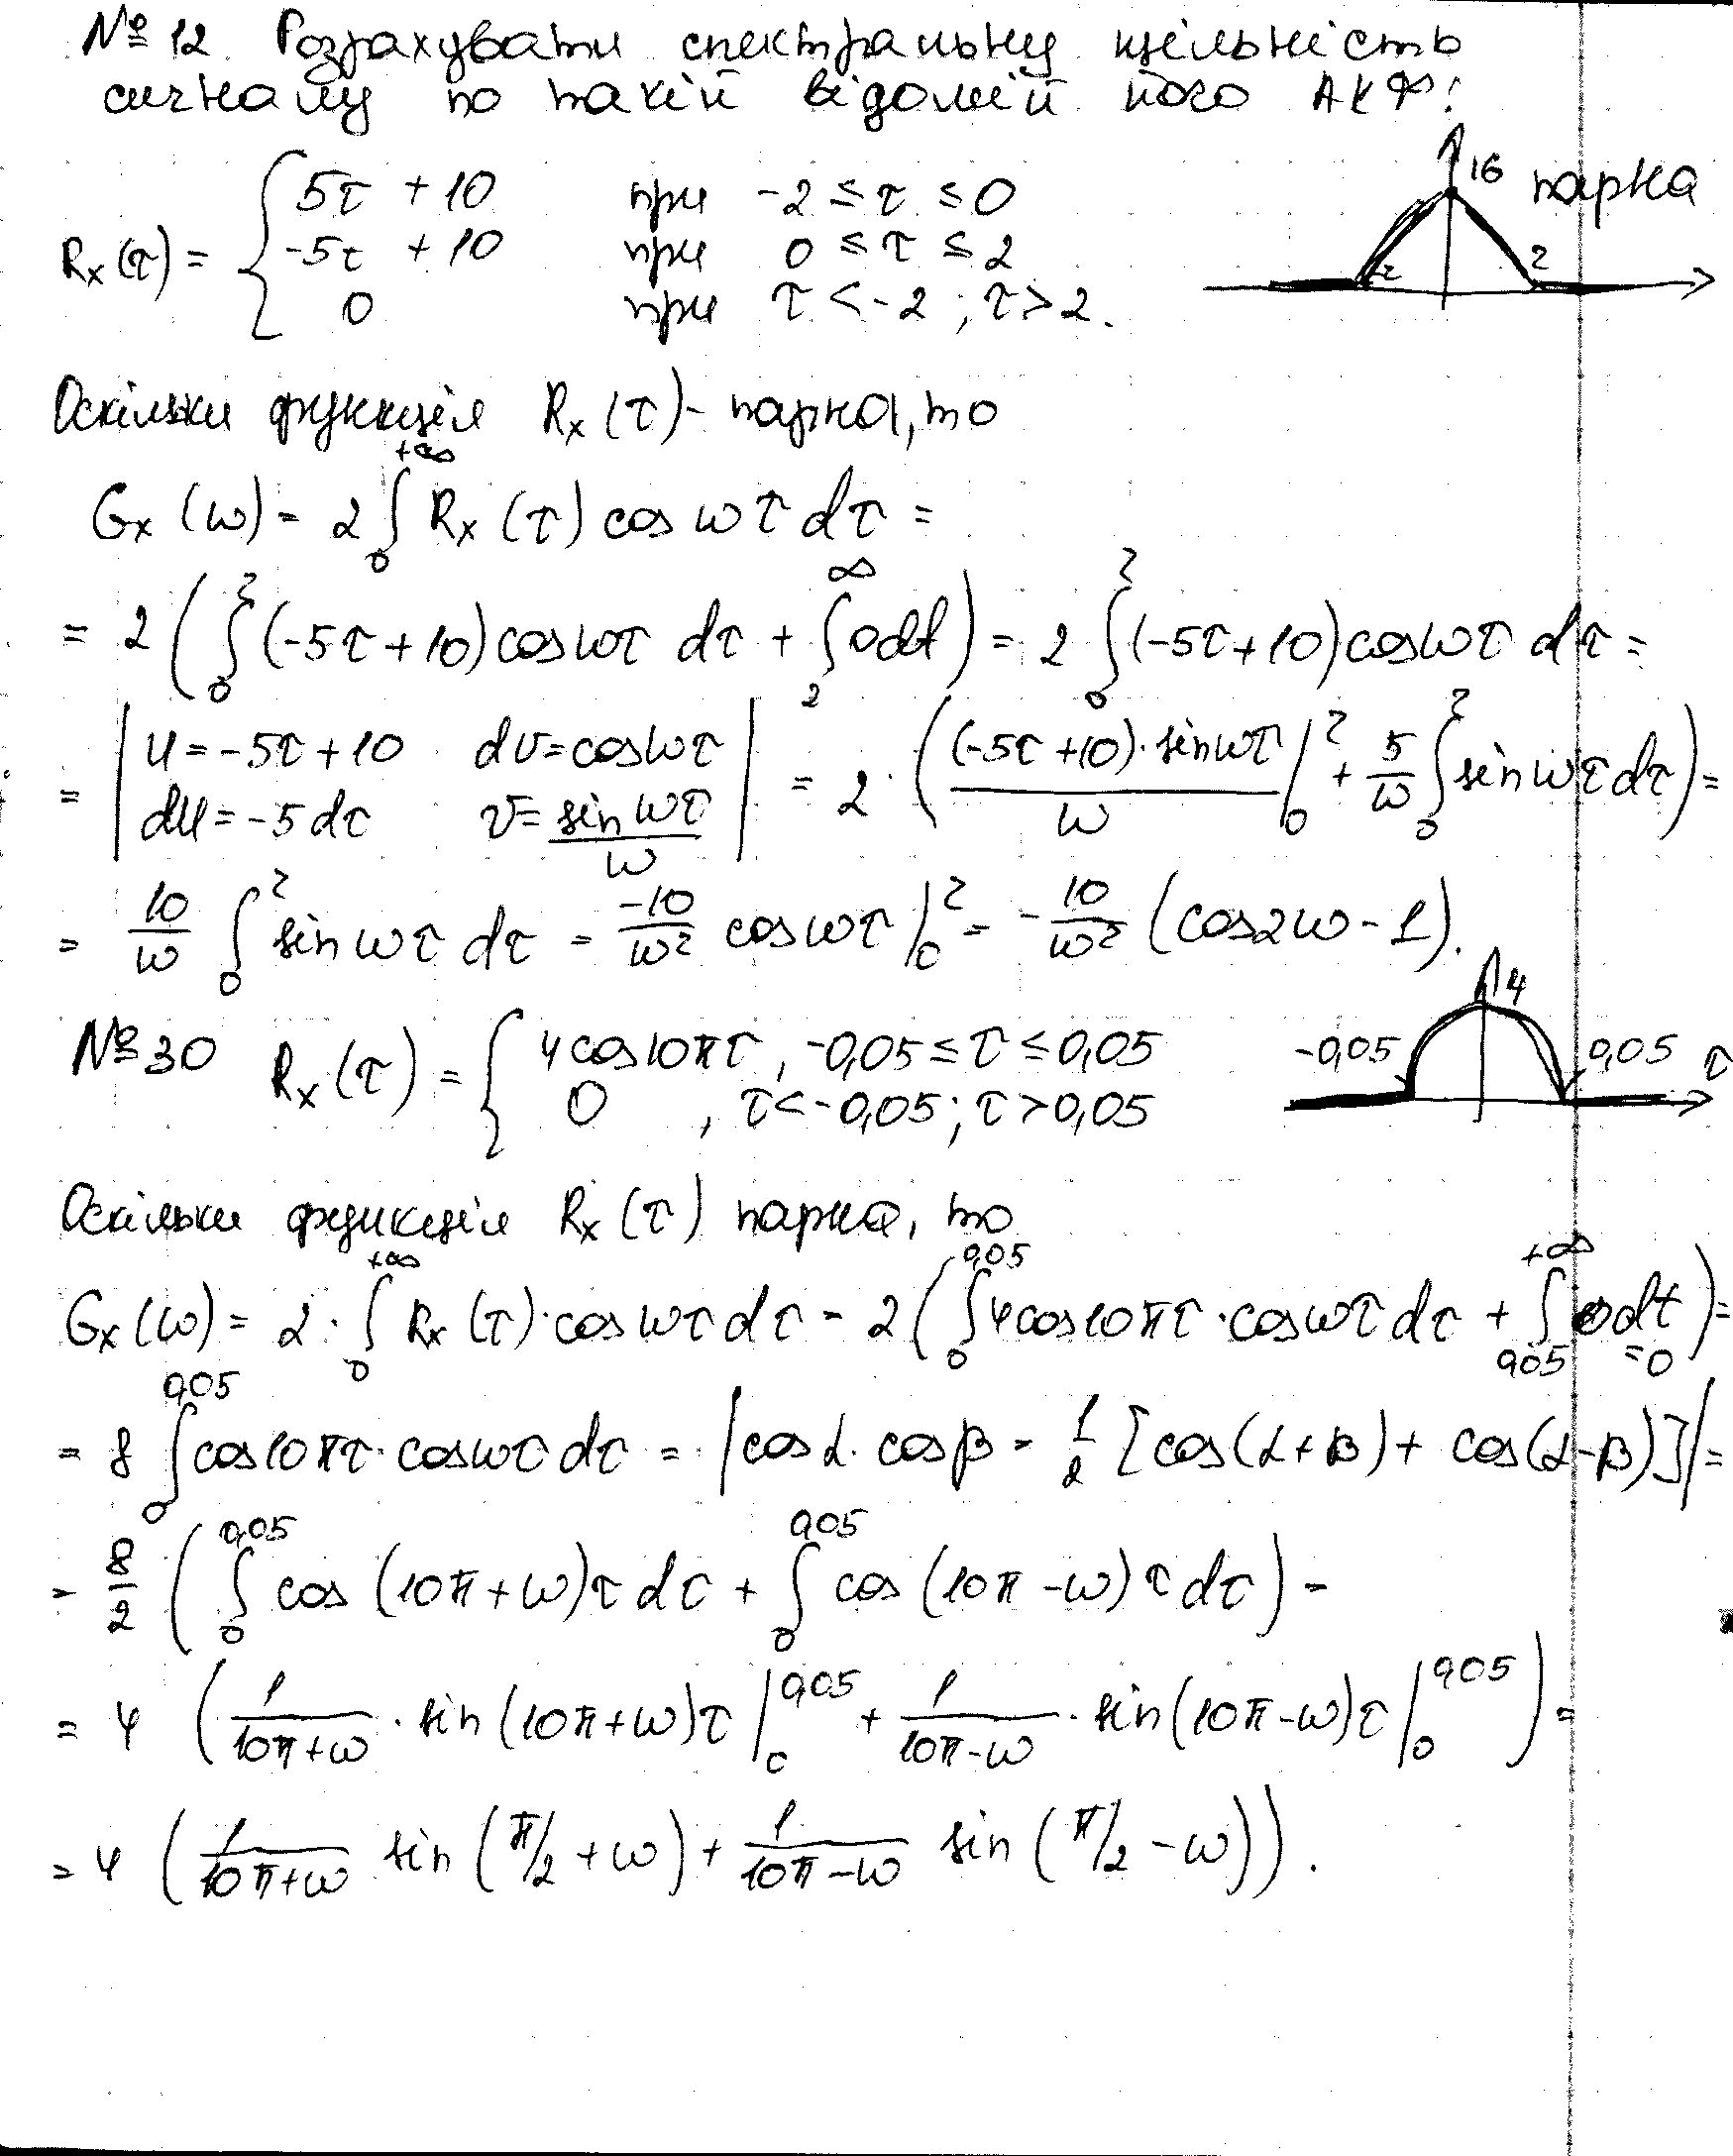 № 12 Розрахувати спектральну щільність
сигналу по такій відомій його АКФ:
Rx(τ) = { 5τ + 10 при -2 ≤ τ ≤ 0
-5τ + 10 при 0 ≤ τ ≤ 2
0 при τ < -2 ; τ > 2.
16 парна
-2 2
Оскільки функція Rx(τ) - парна, то
Gx(ω) = 2 ∫₀^{+∞} Rx(τ) cos ωτ dτ =
= 2 ( ∫₀² (-5τ + 10) cos ωτ dτ + ∫₂^∞ 0 dt ) = 2 ∫₀² (-5τ + 10) cos ωτ dτ =
= | u = -5τ + 10 dv = cos ωτ
du = -5 dτ v = sin ωτ / ω | = 2 · ( (-5τ + 10) · sin ωτ / ω |₀² + 5/ω ∫₀² sin ωτ dτ ) =
= 10/ω ∫₀² sin ωτ dτ = -10/ω² cos ωτ |₀² = - 10/ω² (cos 2ω - 1).
№ 30 Rx(τ) = { 4 cos 10πτ, -0,05 ≤ τ ≤ 0,05
0 , τ < -0,05 ; τ > 0,05
4
-0,05 0,05 τ
Оскільки функція Rx(τ) парна, то
Gx(ω) = 2 · ∫₀^{+∞} Rx(τ) · cos ωτ dτ = 2 ( ∫₀^{0,05} 4 cos 10πτ · cos ωτ dτ + ∫_{0,05}^{+∞} 0 dt = 0 ) =
= 8 ∫₀^{0,05} cos 10πτ · cos ωτ dτ = | cos α · cos β = 1/2 [cos(α + β) + cos(α - β)] | =
= 8/2 ( ∫₀^{0,05} cos (10π + ω)τ dτ + ∫₀^{0,05} cos (10π - ω)τ dτ ) =
= 4 ( 1/(10π + ω) · sin (10π + ω)τ |₀^{0,05} + 1/(10π - ω) · sin (10π - ω)τ |₀^{0,05} ) =
= 4 ( 1/(10π + ω) sin (π/2 + ω) + 1/(10π - ω) sin (π/2 - ω) ) .